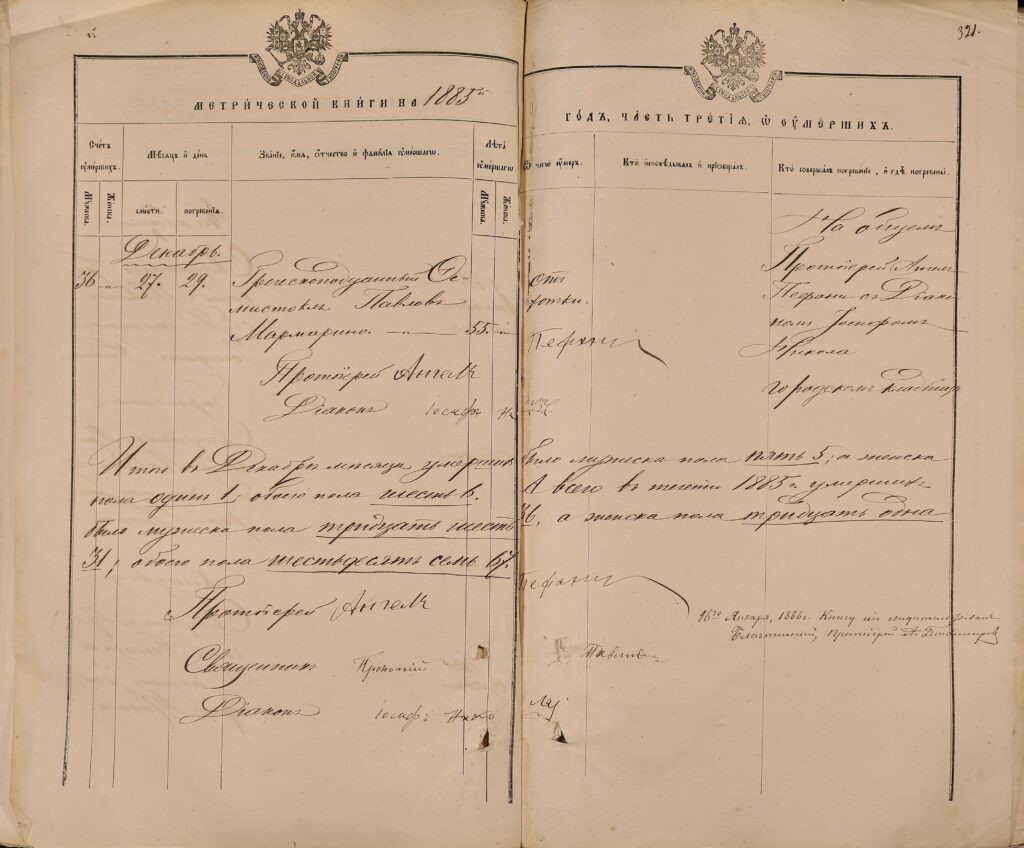 321.
МЕТРИЧЕСКОЙ КНИГИ НА 1885й
ГОДЪ, ЧАСТЬ ТРЕТІЯ, Ѡ ОУМЕРШИХЪ.
Счетъ оумершихъ.
Мѣсяцъ и день
Званіе, имя, отчество и фамилія оумершаго.
Лѣта оумершаго.
Отъ чего оумеръ.
Кто исповѣдывалъ и пріобщалъ.
Кто совершалъ погребеніе, и гдѣ погребены.
Мужеска.
Женска.
смерти.
погребенія.
Мужеска.
Женска.
Декабрь.
36 " 27. 29. Грекоподданный Ѳе-
мистоклъ Павловъ
Мармарино. — 55 "
Отъ
чахотки.
На общемъ
Протоіерей Ангелъ
Пефани съ Діако-
номъ Іосифомъ
Никола
городскомъ кладбищѣ
Протоіерей Ангелъ Пефани
Діаконъ Іосифъ
Итого въ Декабрѣ мѣсяцѣ умершихъ было мужеска пола пять 5; а женска
пола одинъ 1; обоего пола шесть 6. А всего въ теченіи 1885 г. умершихъ
было мужеска пола тридцать шесть 36, а женска пола тридцать одна
31; обоего пола шестьдесятъ семь 67.
Протоіерей Ангелъ Пефани
16го Января, 1886 г. Книгу сію свидѣтельствовалъ
Благочинный, Протоіерей
Священникъ Прокопій
Діаконъ Іосифъ